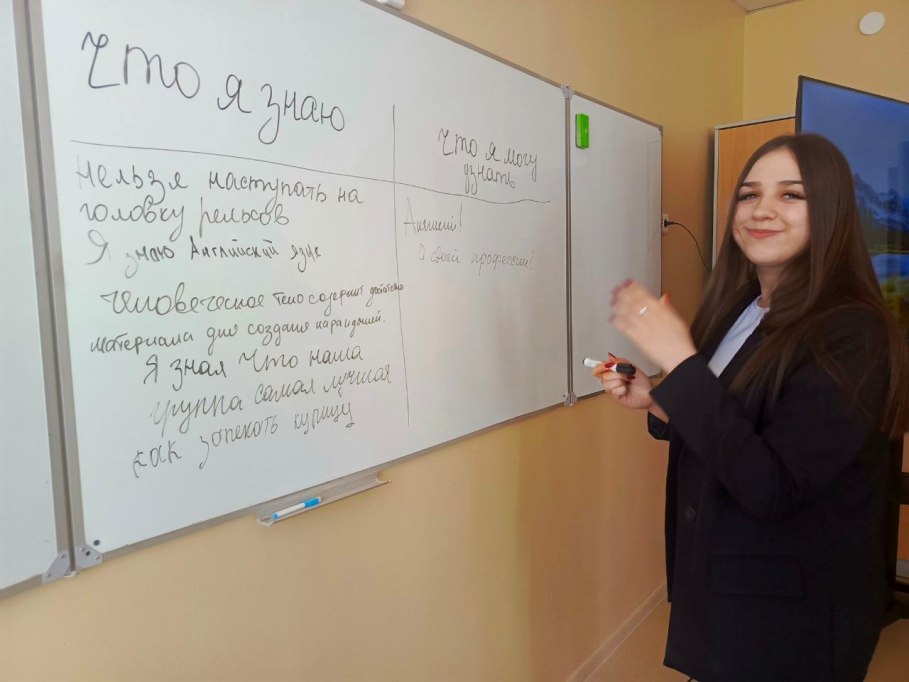 Что я знаю
нельзя наступать на
головку рельсов
Я знаю Английский язык
Человеческое тело содержит достаточно
материала для создания карандашей.
Я знал что наша
группа самая лучшая
как запекать курицу
Что я могу
узнать
О своей профессии!